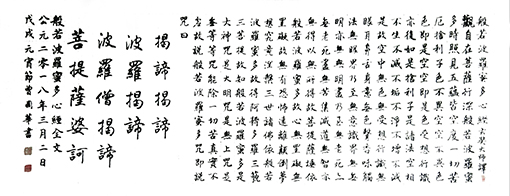 般若波羅蜜多心經 玄奘大師譯
觀自在菩薩行深般若波羅蜜
多時照見五蘊皆空度一切苦
厄舍利子色不異空空不異色
色即是空空即是色受想行識
亦復如是舍利子是諸法空相
不生不滅不垢不淨不增不減
是故空中無色無受想行識無
眼耳鼻舌身意無色聲香味觸
法無眼界乃至無意識界無無
明亦無無明盡乃至無老死亦
無老死盡無苦集滅道無智亦
無得以無所得故菩提薩埵依
般若波羅蜜多故心無罣礙無
罣礙故無有恐怖遠離顛倒夢
想究竟涅槃三世諸佛依般若
波羅蜜多故得阿耨多羅三藐
三菩提故知般若波羅蜜多是
大神咒是大明咒是無上咒是
無等等咒能除一切苦真實不
虛故說般若波羅蜜多咒即說
咒曰
揭諦揭諦
波羅揭諦
波羅僧揭諦
菩提薩婆訶
般若波羅蜜多心經全文
公元二零一八年三月二日
戊戌元宵節國華書